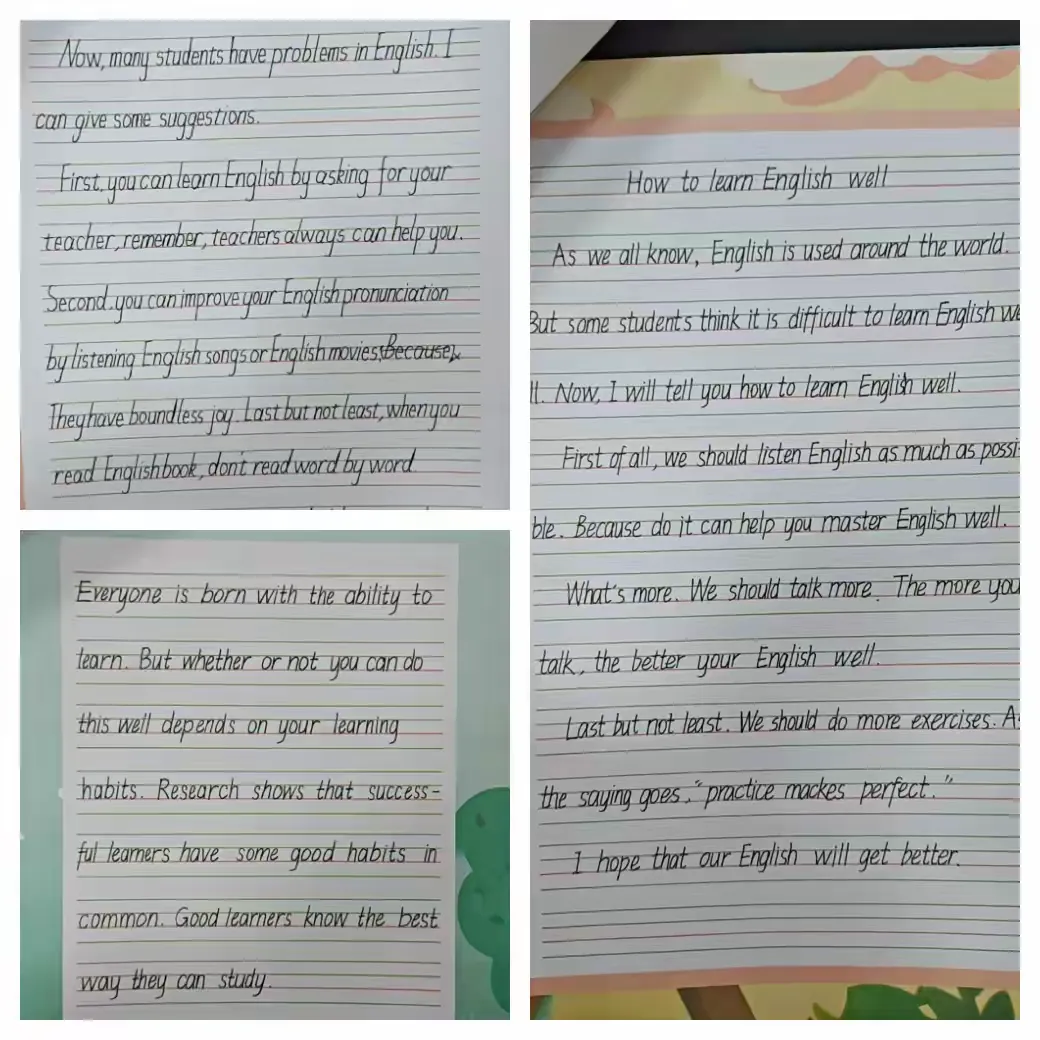 Now, many students have problems in English. I
can give some suggestions.
First, you can learn English by asking for your
teacher, remember, teachers always can help you.
Second. you can improve your English pronunciation
by listening English songs or English movies. Because
They have boundless joy. Last but not least, when you
read English book, don't read word by word
Everyone is born with the ability to
learn. But whether or not you can do
this well depends on your learning
habits. Research shows that success-
ful learners have some good habits in
common. Good learners know the best
way they can study.
How to learn English well
As we all know, English is used around the world.
But some students think it is difficult to learn English we
ll. Now, I will tell you how to learn English well.
First of all, we should listen English as much as possi-
ble. Because do it can help you master English well.
What's more. We should talk more. The more you
talk, the better your English well.
Last but not least. We should do more exercises. As
the saying goes, "practice mackes perfect."
I hope that our English will get better.